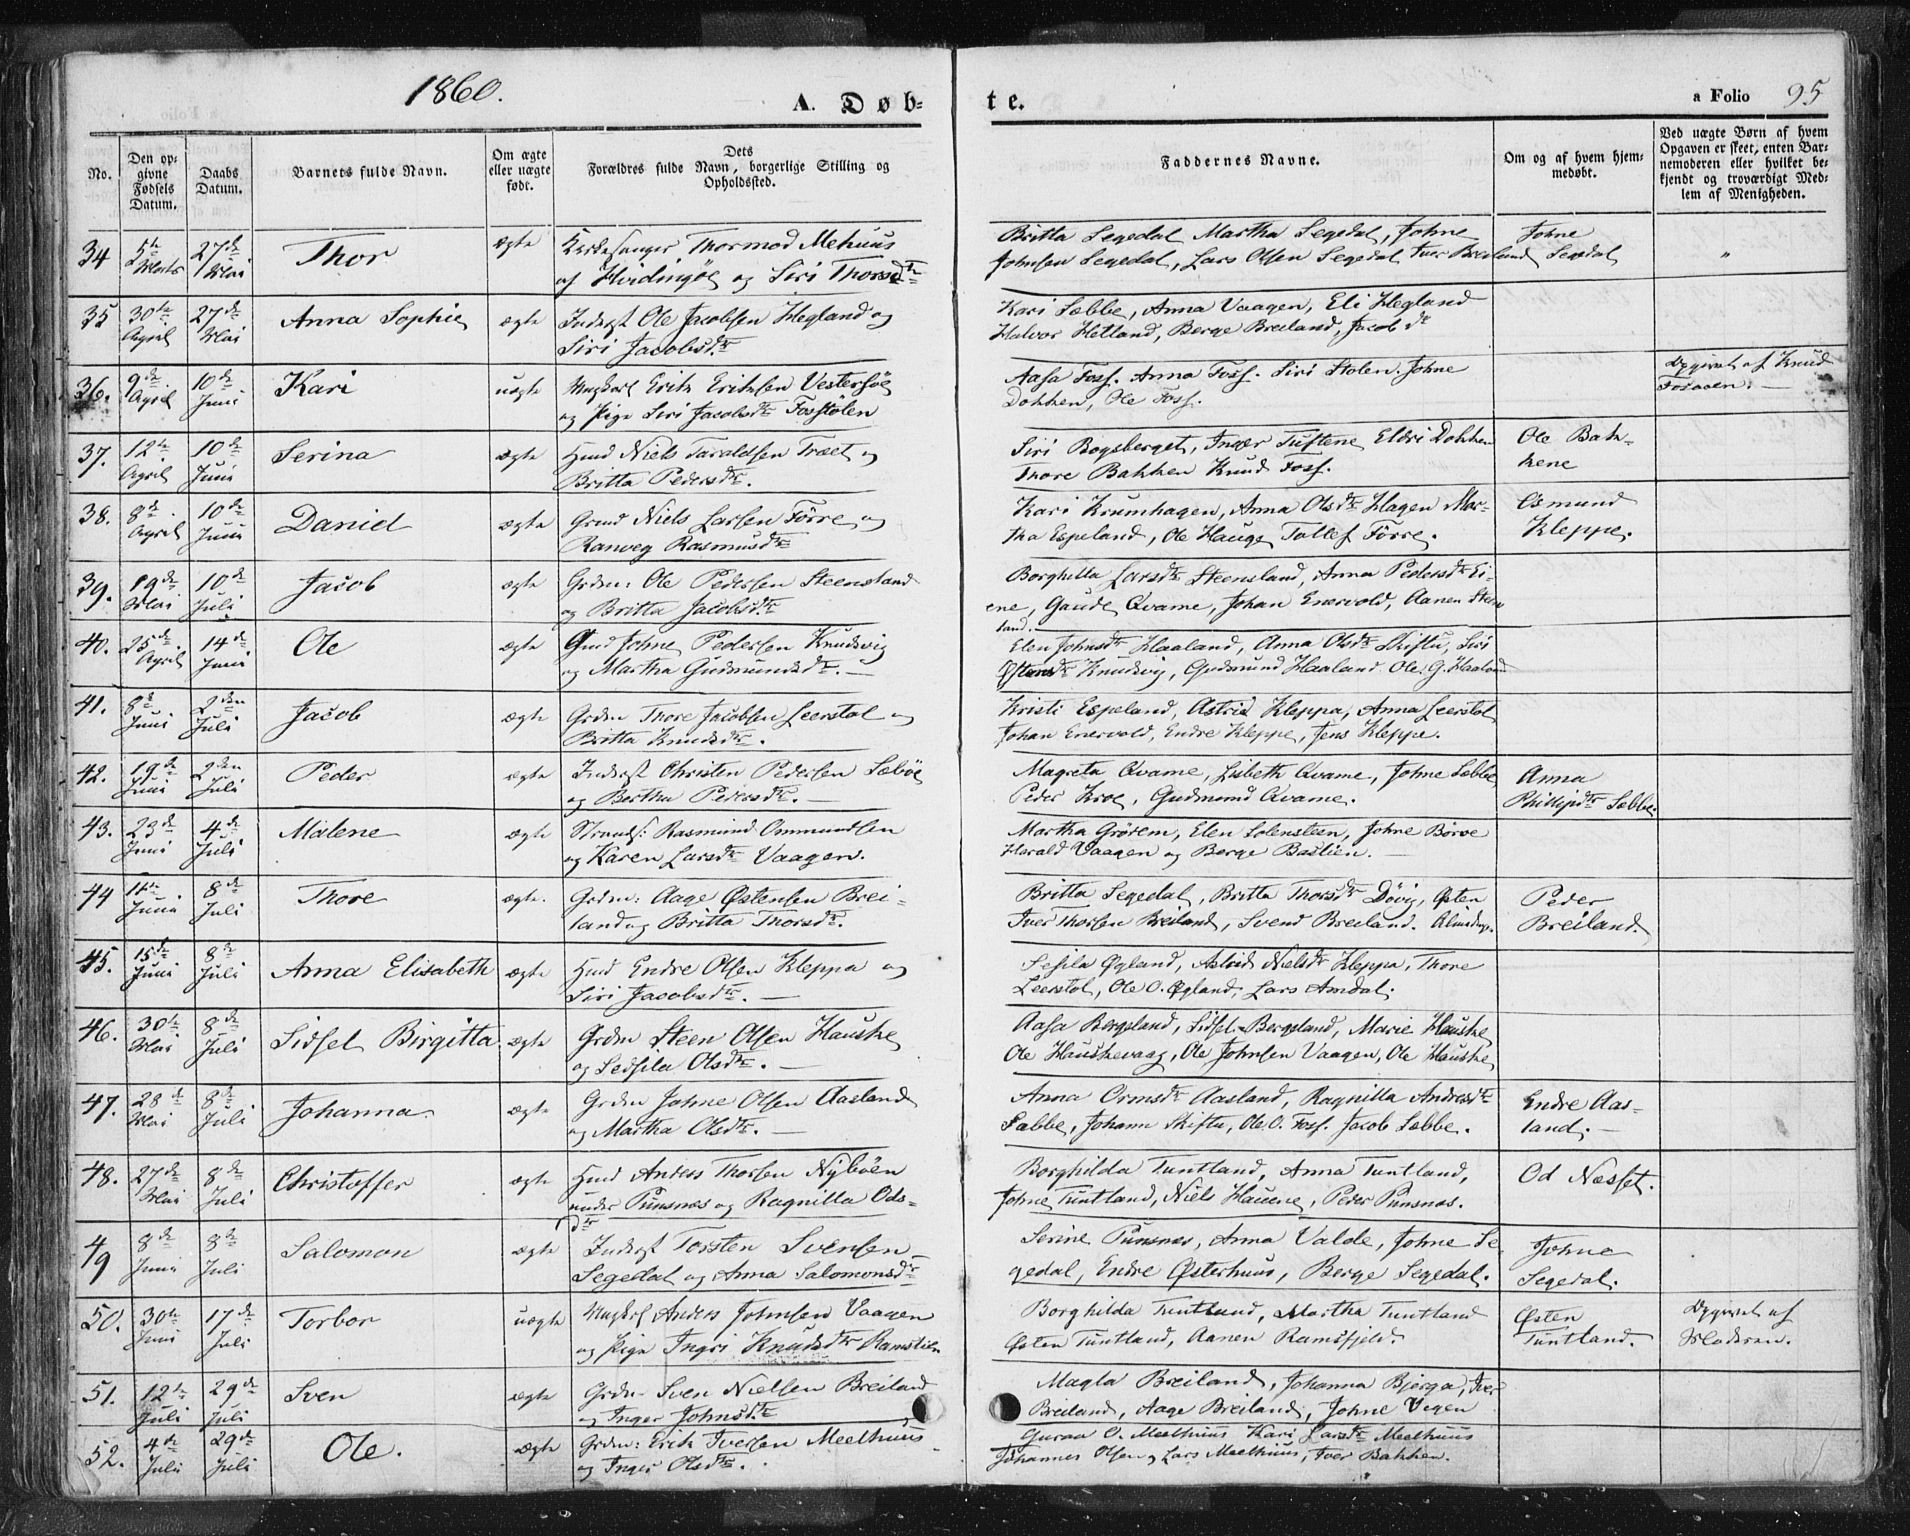 1860.
A. Døb-
te.
a Folio 95
No.
Den op-
givne
Fødsels
Datum.
Daabs
Datum.
Barnets fulde Navn.
Om ægte
eller uægte
født.
Dets
Forældres fulde Navn, borgerlige Stilling og
Opholdssted.
Faddernes Navne.
Om og af hvem hjem-
medøbt.
Ved uægte Børn af hvem
Opgaven er skeet, enten Bar-
nemoderen eller hvilket be-
kjendt og troværdigt Med-
lem af Menigheden.
34 5te Marts 27de Mai Thor ægte Kirkesanger Thormod Mehuus
af Hvidingsöe og Siri Thorsdtr
Britta Segedal, Martha Segedal, Johne
Johnsen Segedal, Lars Olsen Segedal Iver Breiland
Johne
Segedal
"
35 30te April 27de Mai Anna Sophie ægte Inderst Ole Jacobsen Hegland og
Siri Jacobsdtr.
Kari Sæbbe, Anna Vaagen, Eli Hegland
Halvor Hetland, Berge Breiland, Jacob dr
36. 9de April 10de Juni Kari uægte Ungkarl Erik Eriksen Vestersøe
og Pige Siri Jacobsdtr Fosstölen
Aasa Foss. Anna Foss. Siri Stolen. Johne
Dokken, Ole Foss.
Opgivet af Knud
Fosaaen. —
37. 12te April 10de Juni Serina ægte Huusmd Niels Taraldsen Træet og
Britta Pedersdtr.
Siri Bogsberget, Inger Tuftene Eldri Dokken
Thore Bakken Knud Foss.
Ole Bak-
kene
38. 8de April 10de Juni Daniel ægte Grmd Niels Larsen Förre og
Ranveg Rasmusdtr
Kari Krumhagen, Anna Olsdtr Hagen Mar-
tha Espeland, Ole Hauge Tollef Förre.
Osmund
Kleppe.
39. 19de Mai 10de Juli Jacob ægte Grdm: Ole Pedersen Steensland
og Britta Jacobsdtr
Borghilla Larsdtr Steensland, Anna Pedersdtr Ei-
ene, Gaude Qvame, Johan Enervold, Aanen Steens
land.
40. 25de April 14de Juni Ole ægte Gmd Johne Pedersen Knudsvig
og Martha Gudmundsdtr. —
Elen Johnsdtr Haaland, Anna Olsdtr Skiftu, Siri
Østensdtr Knudsvig, Gudmund Haaland Ole G. Haaland
41. 8de Juni 2den Juli Jacob ægte Grdm Thore Jacobsen Leerstol og
Britta Knudsdtr.
Kristi Espeland, Astrid Kleppa, Anna Leerstol
Johan Enervold, Endre Kleppe, Jens Kleppe.
42. 19de Juni 2den Juli Peder ægte Inderst Christen Pedersen Sæbøe
og Bertha Pedersdtr. —
Magreta Qvame, Lisbeth Qvame, Johne Sæbbe
Peder Kroe, Gudmund Qvame.
Anna
Phillipsdtr Sæbbe.
43. 23de Juni 4de Juli Malene ægte Strands: Rasmund Ommundsen
og Karen Larsdtr Vaagen.
Martha Grörem, Elen Solensteen, Johne Börve
Harald Vaagen og Berge Bastien. —
44 14de Junii 8de Juli Thore ægte. Grdm: Aage Østensen Brei-
land og Britta Thorsdtr.
Britta Segedal, Britta Thorsdtr Døvig, Østen
Iver Thorsen Breiland, Svend Breiland.
Peder
Breiland.
45. 15de Juni 8de Juli Anna Elisabeth ægte Hmd Endre Olsen Kleppa og
Siri Jacobsdtr. —
Sesila Øgland, Astrid Nielsdtr Kleppa, Thore
Leerstol, Ole O. Øgland, Lars Amdal.
46. 30te Mai 8de Juli Sidsel Birgitta ægte Grdm Steen Olsen Hauske
og Sedsila Olsdtr. —
Aasa Bergsland, Sidsel Bergsland, Marie Hauske
Ole Hauskevaag, Ole Johnsen Vaagen, Ole Hauske
47. 28de Mai 8de Juli Johanna ægte Grdm Johne Olsen Aasland
og Martha Olsdtr. —
Anna Ormsdtr Aasland, Ragnilla Andersdtr
Sæbbe, Johann Skiftu, Ole O. Foss. Jacob Sæbbe.
Endre Aas-
land. —
48. 27de Mai 8de Juli Christoffer ægte Hmd Anders Thorsen Nyböen
under Punsnæs og Ragnilla Ods-
dtr
Borghilda Tuntland, Anna Tuntland,
Johne Tuntland, Niels Hauene, Peder Punsnæs.
Od Næsset.
49 8de Juni 8de Juli Salomon ægte Inderst Torsten Svensen
Segedal og Anna Salomonsdtr
Serine Punsnæs, Anna Valde, Johne Se-
gedal, Endre Østerhuus, Berge Segedal.
Johne
Segedal.
50. 30te Juni 17de Juli Torbor uægte Ungkarl Anders Johnsen Vaagen
og Pige Ingri Knudsdtr Ramstien
Borghilda Tuntland, Martha Tuntland
Østen Tuntland, Aanen Ramsfjeld
Østen
Tuntland.
Opgivet af
Moderen.
51. 12te Juli 29de Juli Sven ægte Grdm Sven Nielsen Breiland
og Inger Johnsdtr.
Magla Breiland, Johanna Bjerga, Iver
Breiland, Aage Breiland, Johne Vegen
52. 4de Julii 29de Juli Ole. ægte Grdm: Erik Iversen Meelhuus
og Inger Olsdtr.
Guraa O. Meelhuus Kari Larsdtr Meelhuus
Johannes Olsen og Lars Meelhuus, Iver Bakken.